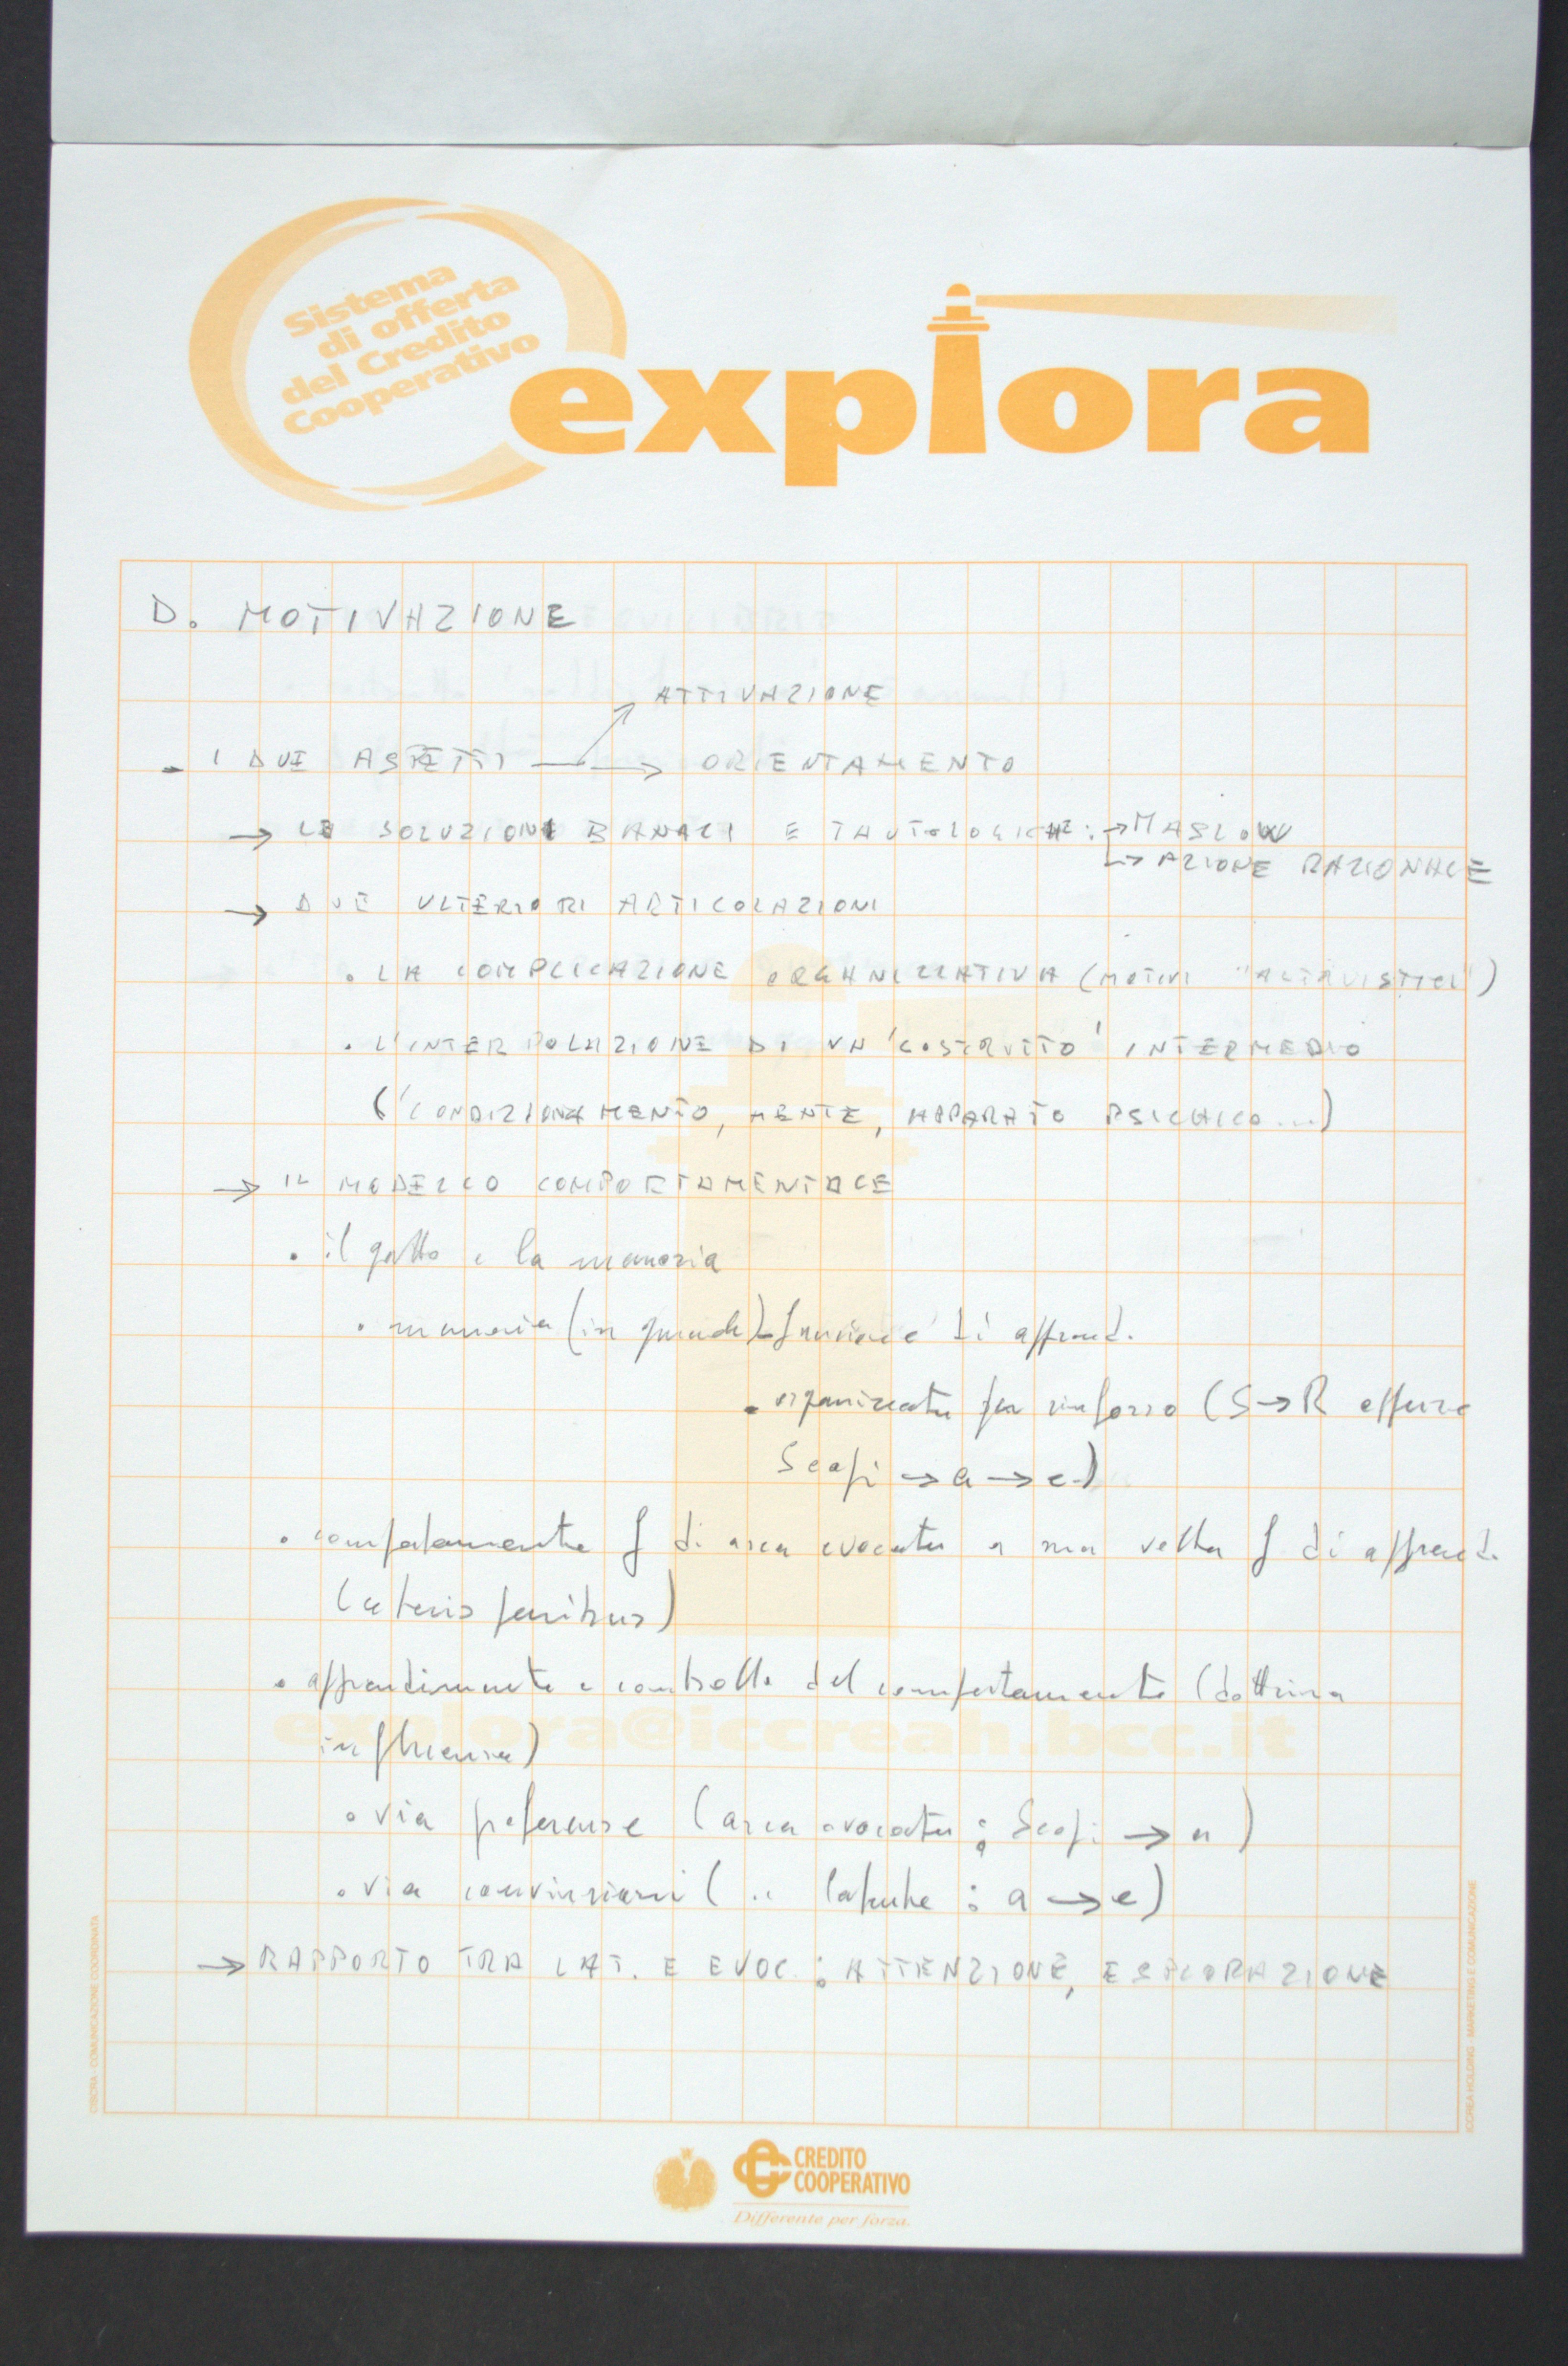 Sistema
di offerta
del Credito
Cooperativo
explora
D. MOTIVAZIONE
ATTIVAZIONE
- I DUE ASPETTI → ORIENTAMENTO
→ LE SOLUZIONI BANALI E TAUTOLOGICHE: → MASLOW
→ AZIONE RAZIONALE
→ DUE ULTERIORI ARTICOLAZIONI
• LA COMPLICAZIONE ORGANIZZATIVA (MOTIVI "ALTRUISTICI")
• L'INTERPOLAZIONE DI UN 'COSTRUTTO' INTERMEDIO
('CONDIZIONAMENTO, MENTE, APPARATO PSICHICO...)
→ IL MODELLO COMPORTAMENTALE
• il gatto e la memoria
• memoria (in grande) funzione di apprend.
• organizzata per rinforzo (S→R oppure
Scopi → a → e)
• comportamento f di area evocata a sua volta f di apprend.
(ceteris paribus)
• apprendimento e controllo del comportamento (dottrina
influenza)
• via preferenze (area evocata: Scopi → a)
• via convinzioni ( " latente : a → e)
→ RAPPORTO TRA LAT. E EVOC.: ATTENZIONE, ESPLORAZIONE
explora@iccreah.bcc.it
CISCRA - COMUNICAZIONE COORDINATA
ICCREA HOLDING - MARKETING E COMUNICAZIONE
CREDITO
COOPERATIVO
Differente per forza.